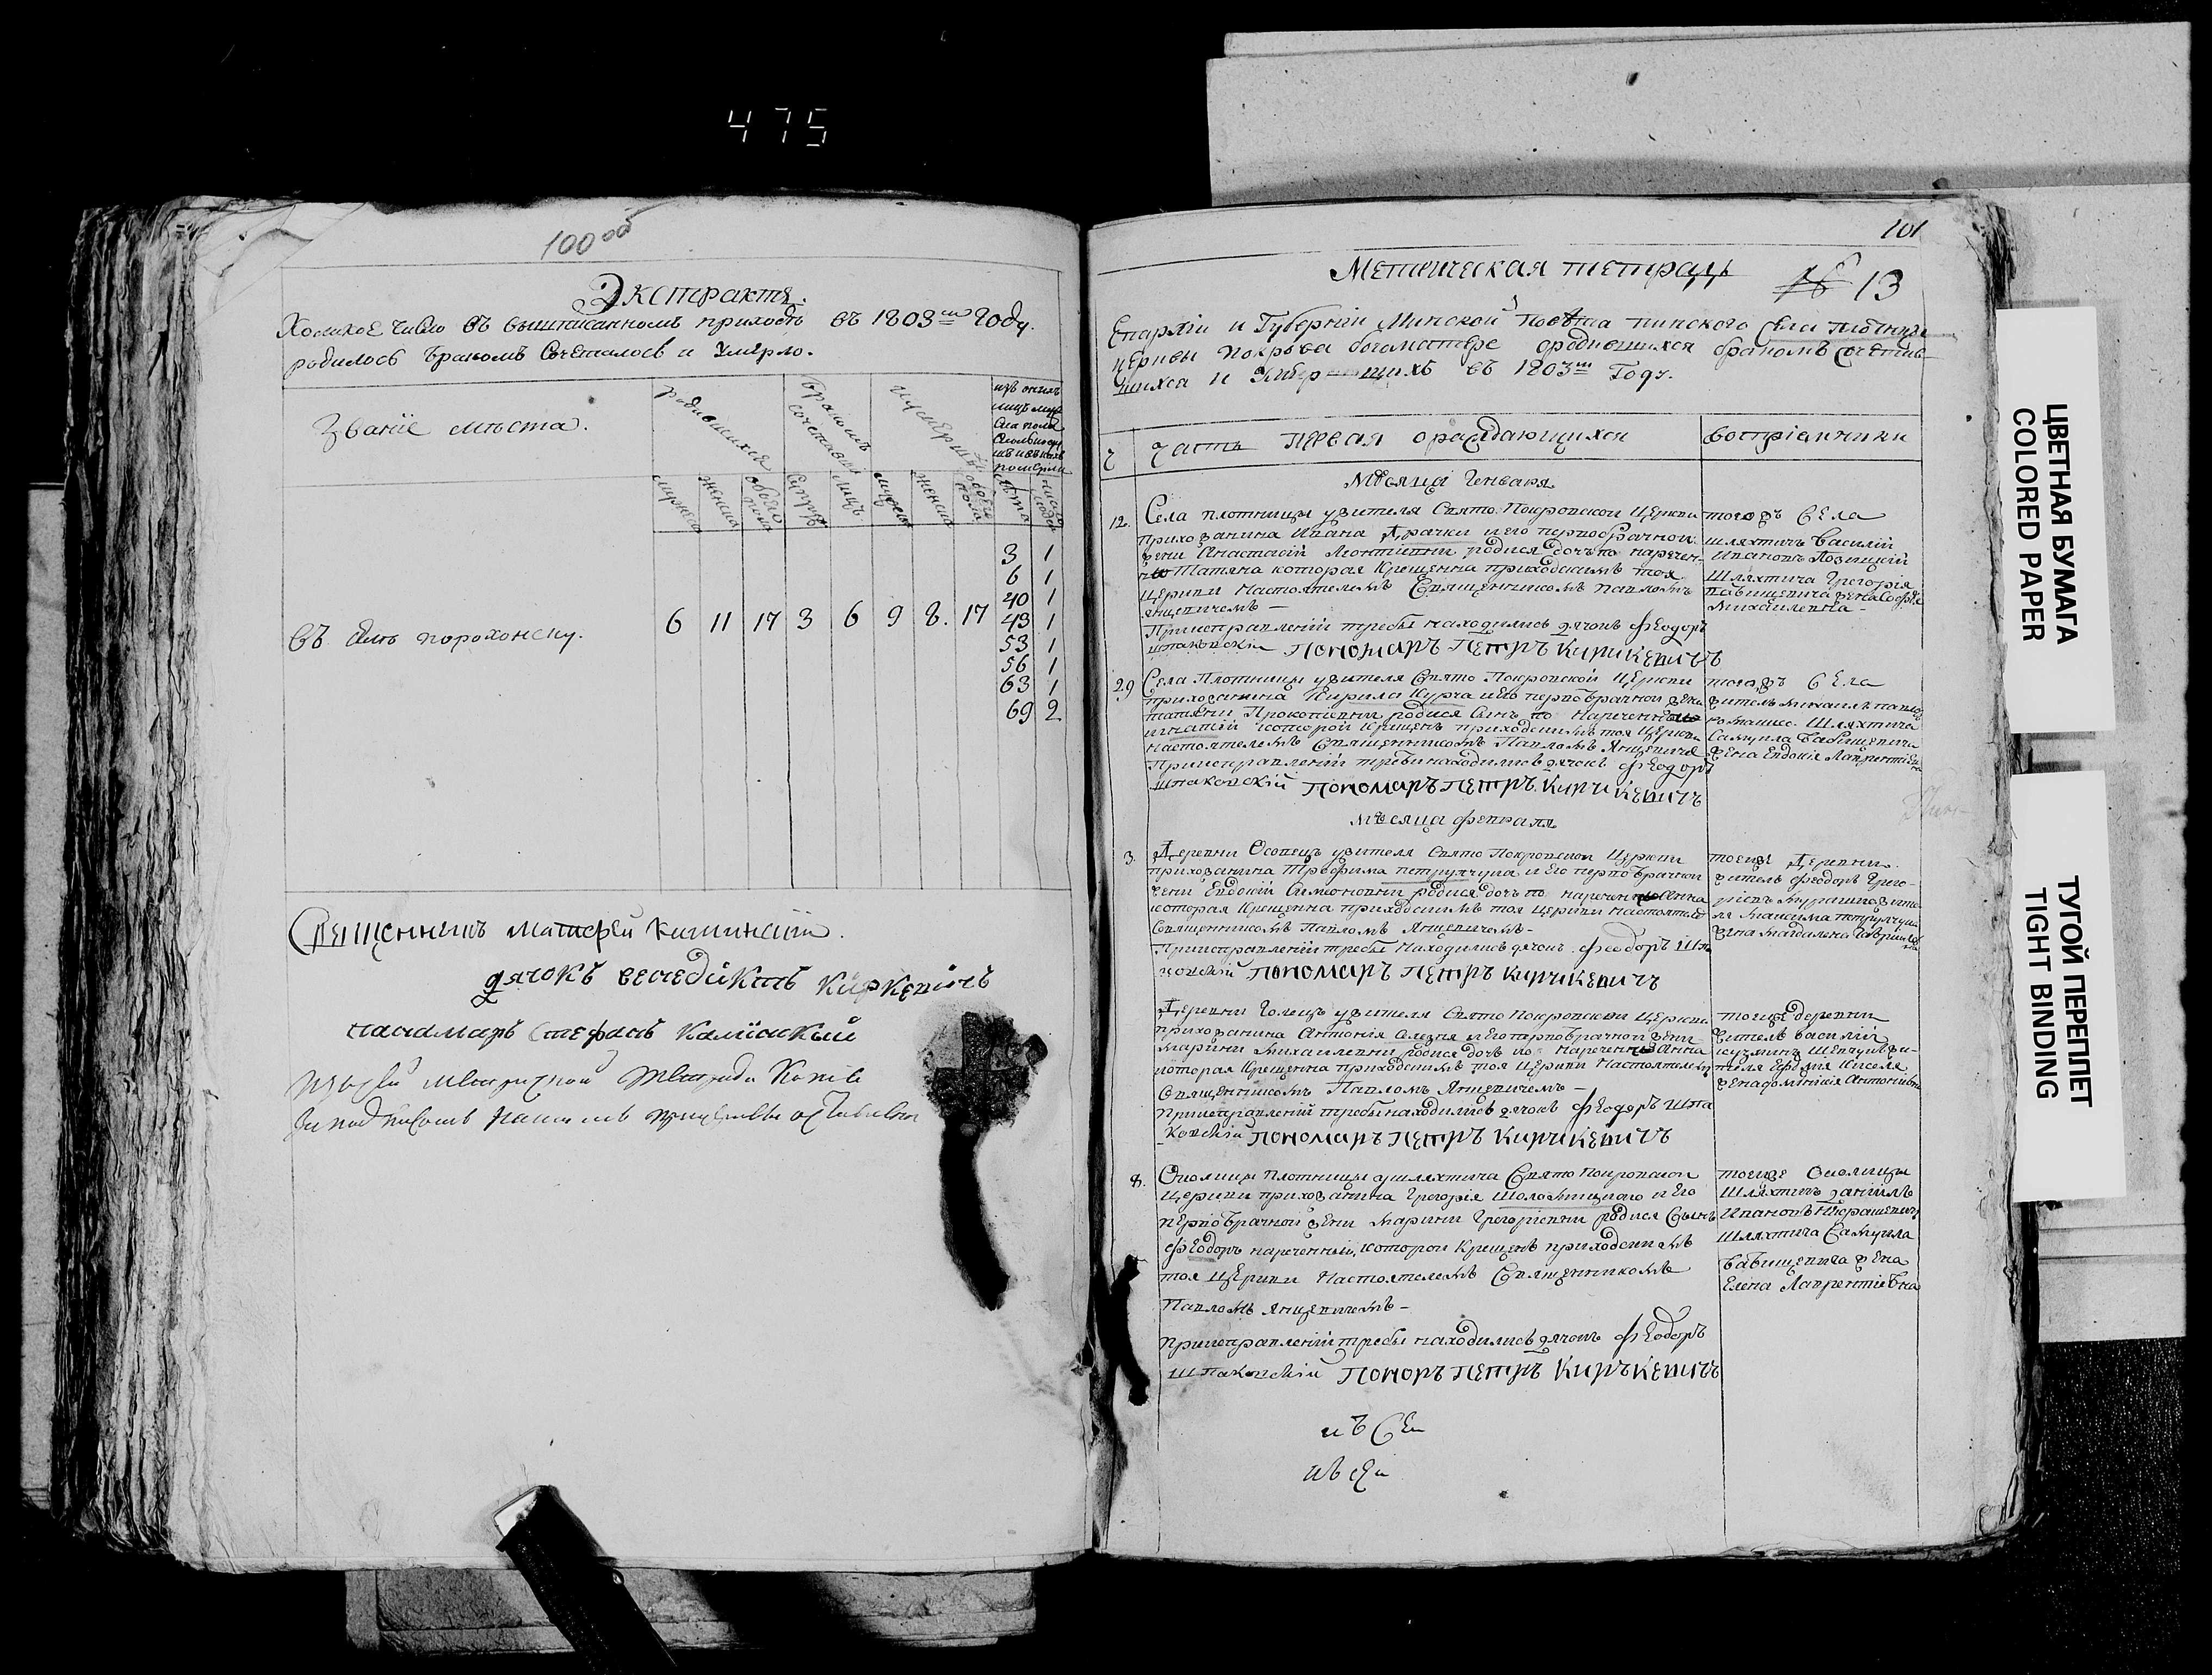 475
100 об
Экстрактъ.
Коликое число въ вышписанномъ приходѣ въ 1803м году.
родилось бракомъ сочеталось и умерло.
Званіе мѣста.
родившихся
бракомъ сочетавши
умершихъ
мужеска
женска
обоего пола
супруг
лицъ
мужеска
женска
обоего пола
лѣта
число людей
въ селѣ порохонску.
6 11 17 3 6 9 8. 17
3 1
6 1
40 1
43 1
53 1
56 1
63 1
69 2
Священникъ Матфей
дячокъ венедиктъ Киркевичъ
панамаръ Стефанъ
101
Метрическая тетрадь
№ 13
Епархіи и Губерніи Минской Повѣта пинского Села плотницы
церкви покрова богоматере о родившихся бракомъ сочетав
шихся и Умершихъ въ 1803м Году.
Ч
часть первая о раждающихся
воспріемники
Мѣсяца Генваря
12.
Села плотницы жителя Свято Покровской Церкви
прихожанина Ивана Драчки и его первобрачной
жени Анастасіи Леонтіевни родися дочъ по нареченію
Татяна которая Крещенна приходскимъ тоя
Церкви Настоятелемъ Священникомъ Павломъ
Янцевичемъ —
При исправленіи требы находились дячокъ Феодоръ
шпаковскій Пономаръ Петръ Кирикевичъ
тогожъ Села
шляхтичъ Василій
Ивановъ Лозицкій
Шляхтича Григорія
бабищевича жена Софія
Михайлевна —
29
Села Плотницы жителя Свято Покровской Церкви
прихожанина Кирила Курча и его первобрачной жени
татяни Прокопіевни родися Синъ по нареченію
игнатій которой Крещенъ приходскимъ тоя Церкви
настоятелемъ Священникомъ Павломъ Янцевичемъ
При исправленіи требы находились дячокъ Феодоръ
шпаковскій Пономаръ Петръ Кирикевичъ
тогожъ Села
житель михаилъ павлов
Шляхтича
Самуила бабищевича
жена Евдокія Лаврентіевна
мѣсяца февраля
3.
Деревни Осовецъ жителя Свято Покровской Церкви
прихожанина Трофима петручука и Его первобрачной
жени Евдокіи Симоновни родися дочъ по нареченію Анна
которая Крещенна приходскимъ тоя Церкви Настоятелемъ
Священникомъ Павломъ Янцевичемъ —
При исправленіи требы Находились дячокъ Феодоръ Шпа
ковскій Пономаръ Петръ Кирикевичъ
тоейже Деревни
житель Феодоръ Григо-
ріевъ
ля максима петручука
жена магдалена Гавриловна
Деревни Голецъ жителя Свято Покровской Церкви
прихожанина Антонія Селезня и Его первобрачной жени
Марини михайлевни родися дочъ по нареченію Анна
которая Крещенна приходскимъ тоя Церкви Настоятелемъ
Священникомъ Павломъ Янцевичемъ —
При исправленіи требы находились дячокъ Феодоръ Шпа
Ковскій Пономаръ Петръ Кирикевичъ
тоейже деревни
житель василій
кузминъ
теля Ефимія Киселя
жена доминикія Антоніевна
8.
Околицы Плотницы у шляхтича Свято Покровской
Церкви прихожанина Григорія Шоломицкого и Его
первобрачной жени Марини Григоріевни родися Сынъ
Феодоръ нареченный, которой Крещенъ приходскимъ
тоя Церкви Настоятелемъ Священникомъ
Павломъ Янцевичемъ —
При исправленіи требы находились дячокъ Феодоръ
Шпаковскій Поноръ Петръ Киръкевичъ
тоейже Околицы
Шляхтичъ даніилъ
Ивановъ
Шляхтича Самуила
бабищевича жена
Елена Лаврентіевна
ЦВЕТНАЯ БУМАГА
COLORED PAPER
ТУГОЙ ПЕРЕПЛЕТ
TIGHT BINDING